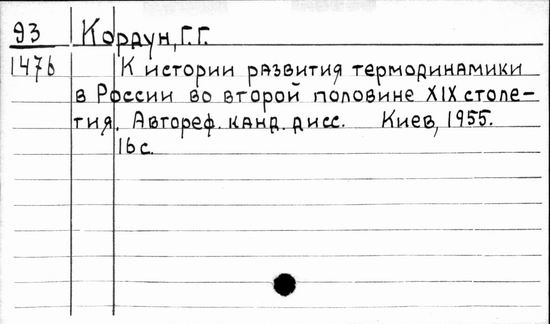 93 Кордун, Г.Г.
1476 К истории развития термодинамики
в России во второй половине XIX столе-
тия. Автореф. канд. дисс. Киев, 1955.
16 с.